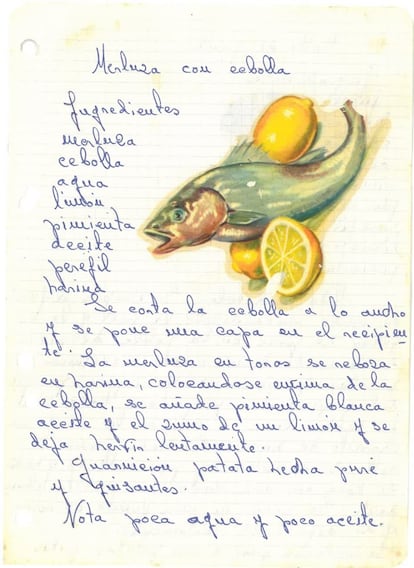 Merluza con cebolla
Ingredientes
merluza
cebolla
agua
limón
pimienta
aceite
perejil
harina
Se corta la cebolla a lo ancho
y se pone una capa en el recipien-
te. La merluza en trozos se reboza
en harina, colocandose encima de la
cebolla, se añade pimienta blanca
aceite y el zumo de un limón y se
deja hervir lentamente.
Guarnición patata hecha puré
y guisantes.
Nota poca agua y poco aceite.